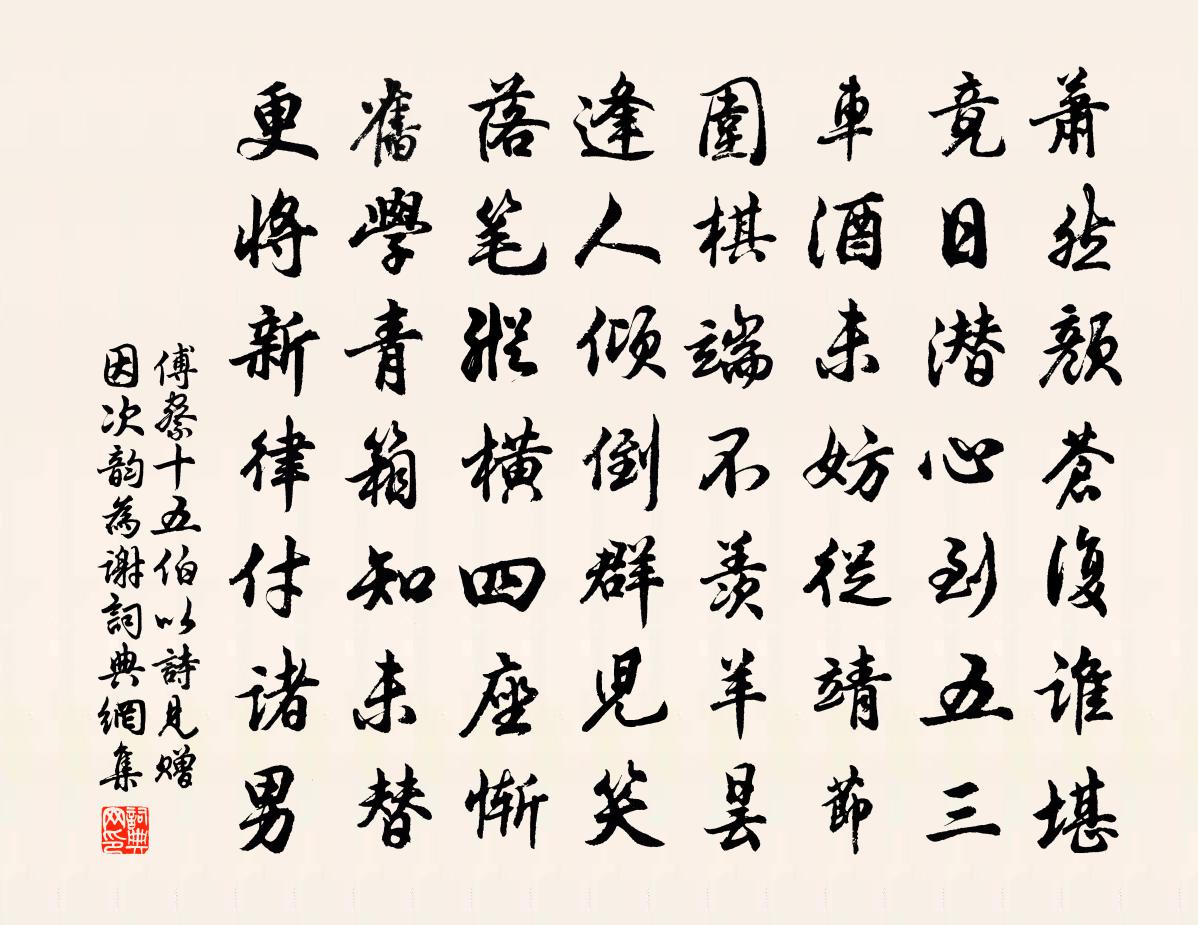 蕭然顏蒼復誰堪
竟日潛心到五三
車酒未妨從靖節
圍棋端不羨羊曇
逢人傾倒群兒笑
落笔縱橫四座慚
舊學青箱知未替
更將新律付諸男
傅察十五伯以詩見赠
因次韵為谢詞典網集
詞典网印